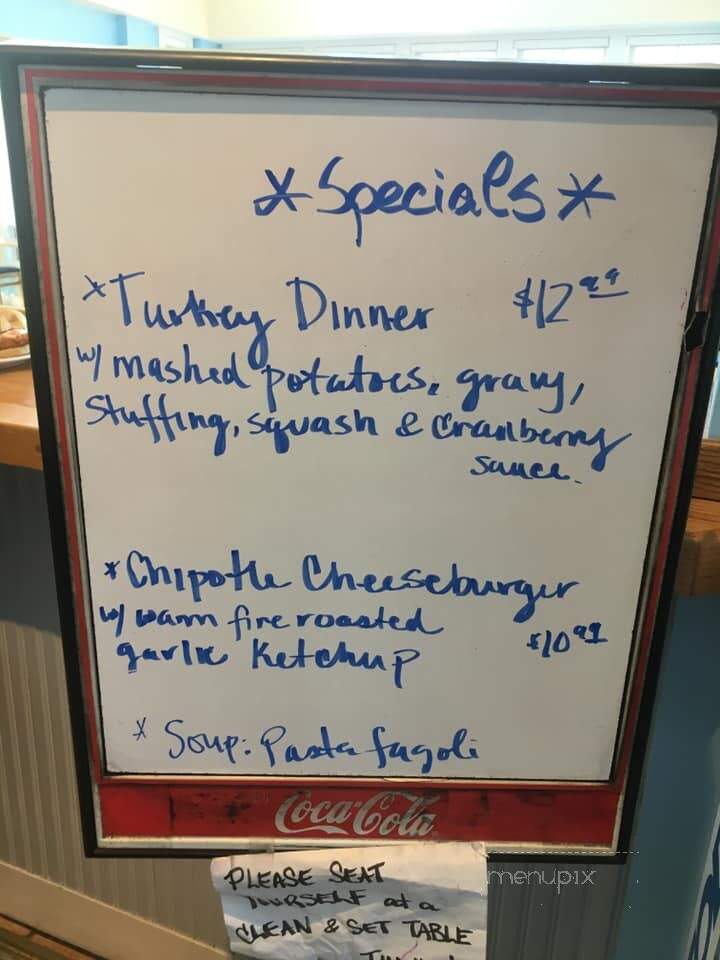 *Specials*
*Turkey Dinner $12.99
w/ mashed potatoes, gravy,
Stuffing, squash & cranberry
sauce.
*Chipotle Cheeseburger
w/ warm fire roasted
garlic Ketchup $10.99
* Soup: Pasta fagoli
Coca-Cola
PLEASE SEAT
YOURSELF at a
CLEAN & SET TABLE
menupix